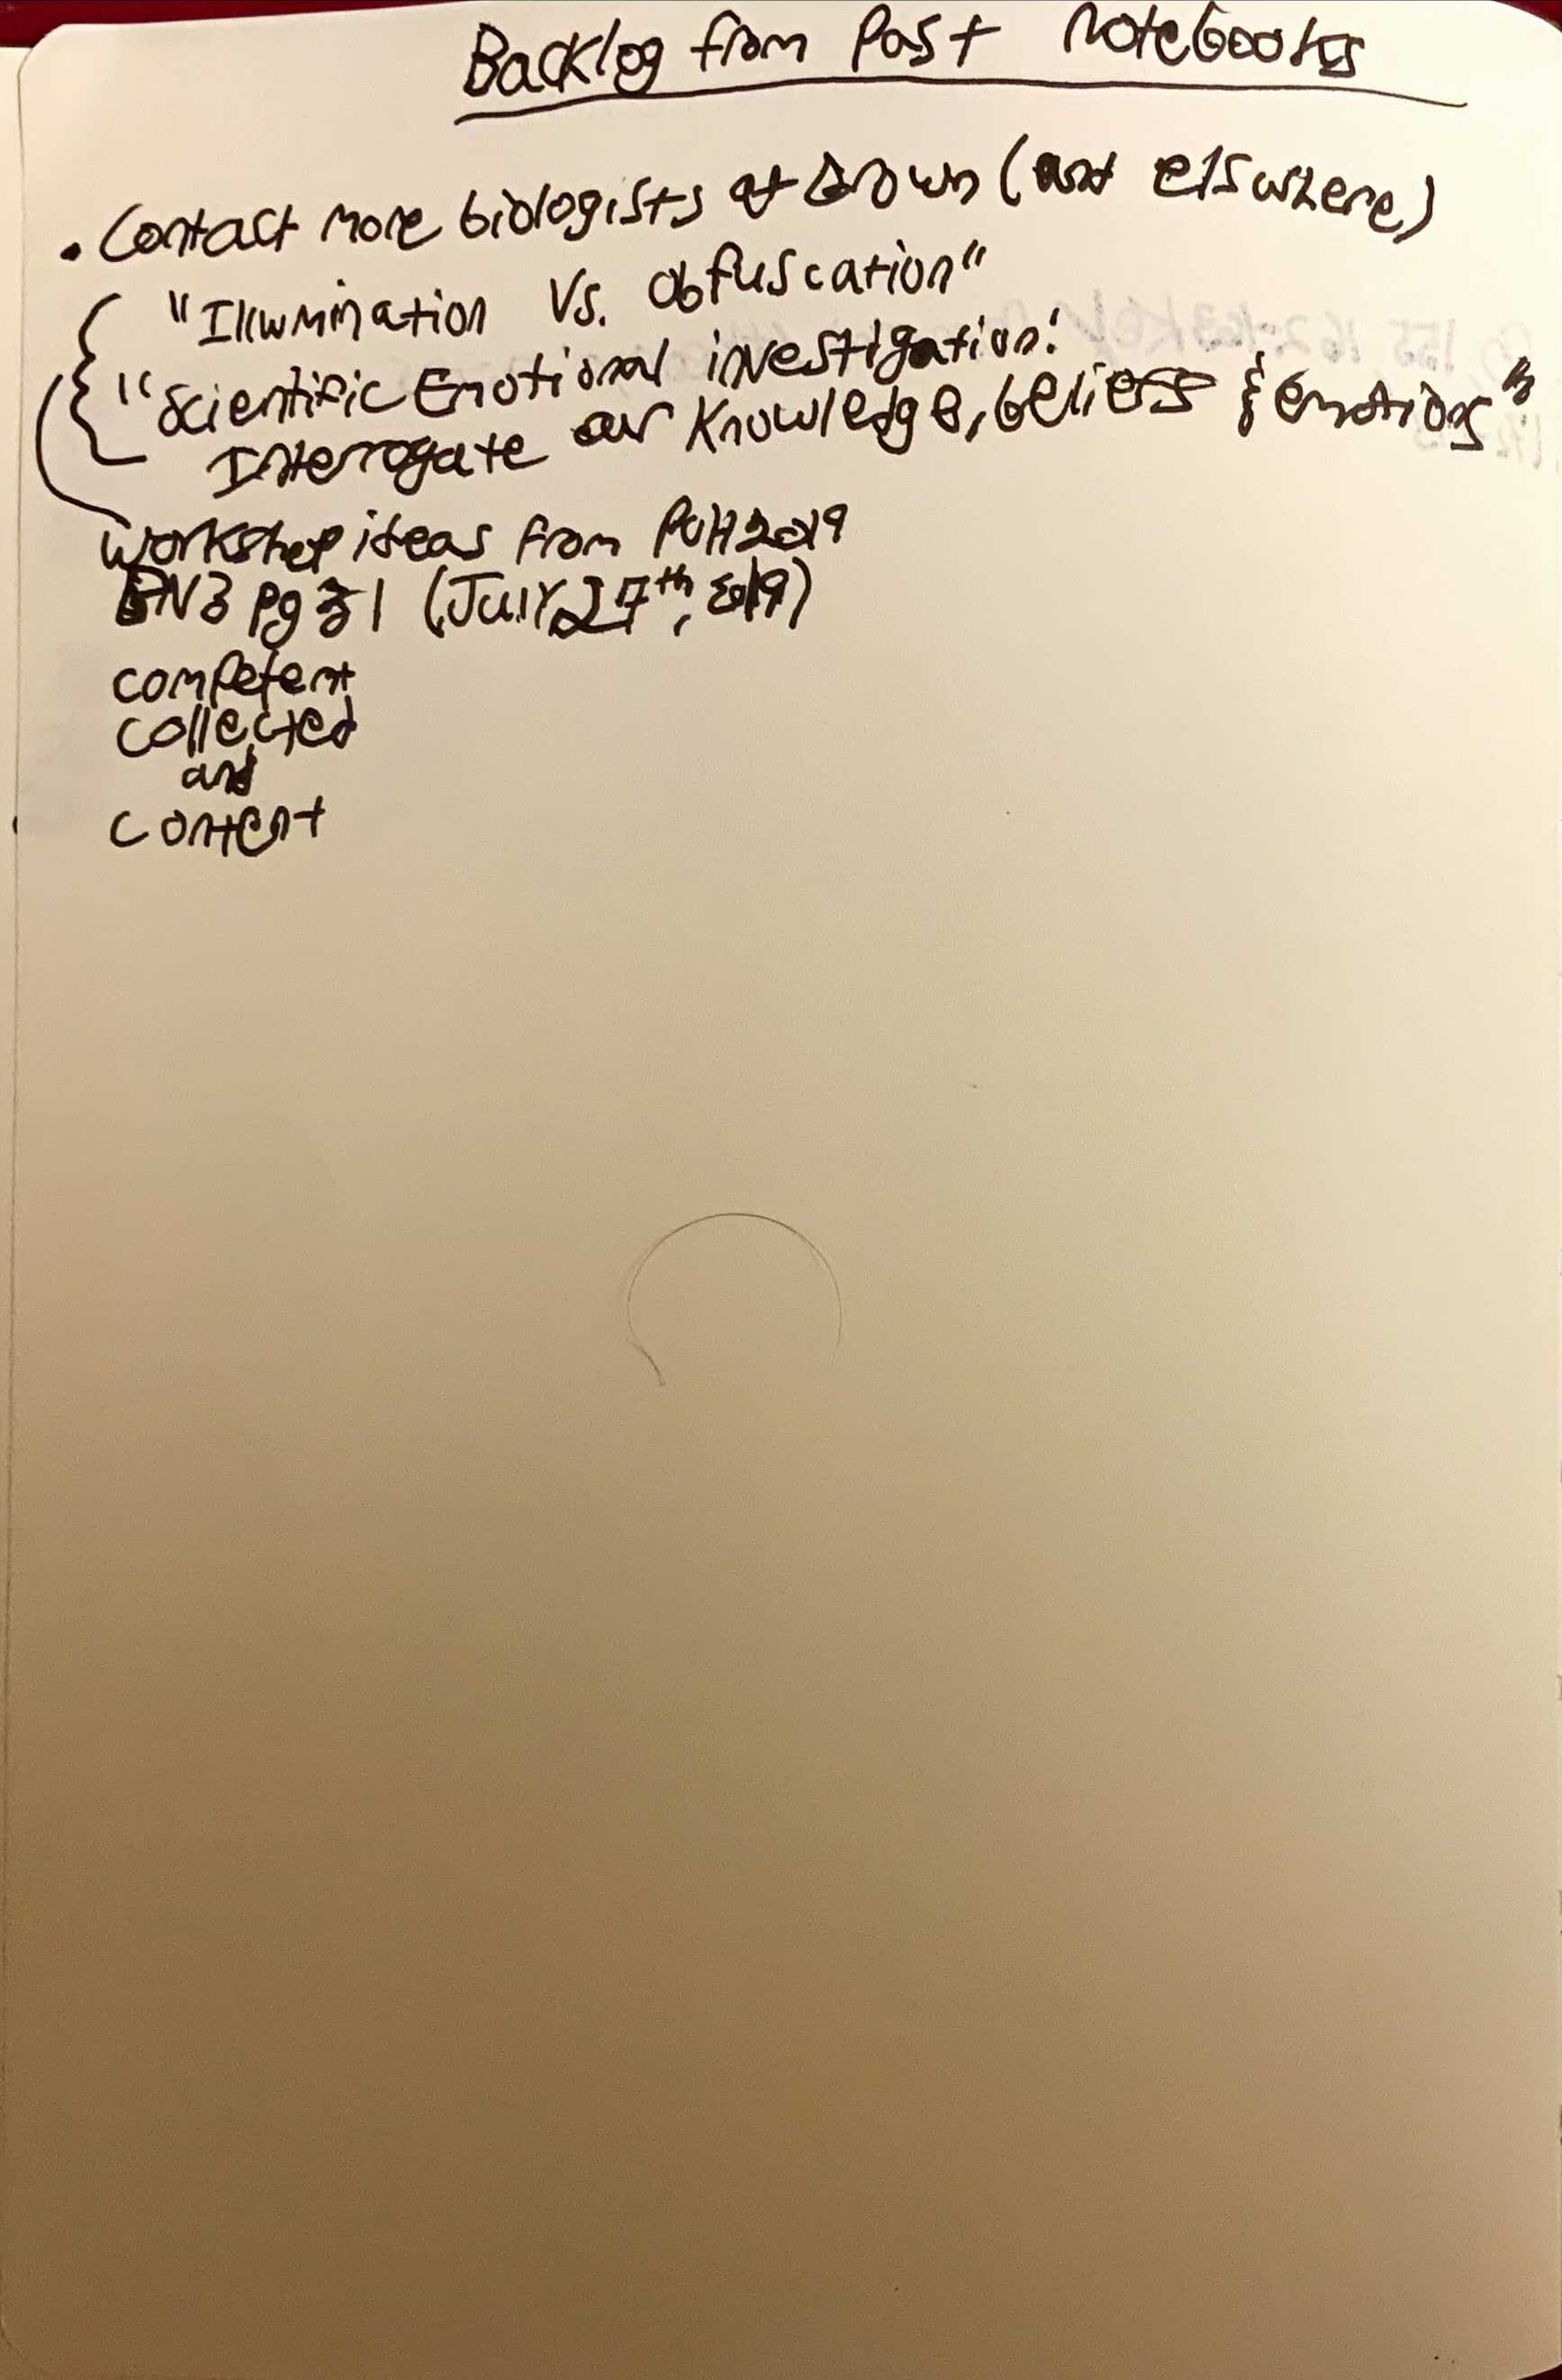 Backlog from Past Notebooks
• Contact more biologists at Brown (and elswhere)
"Illumination Vs. Obfuscation"
"Scientific Emotional investigation:
Interrogate our Knowledge, beliefs & emotions"
Workshop ideas from PUH 2019
BN3 pg 31 (July 27th, 2019)
competent
collected
and
content